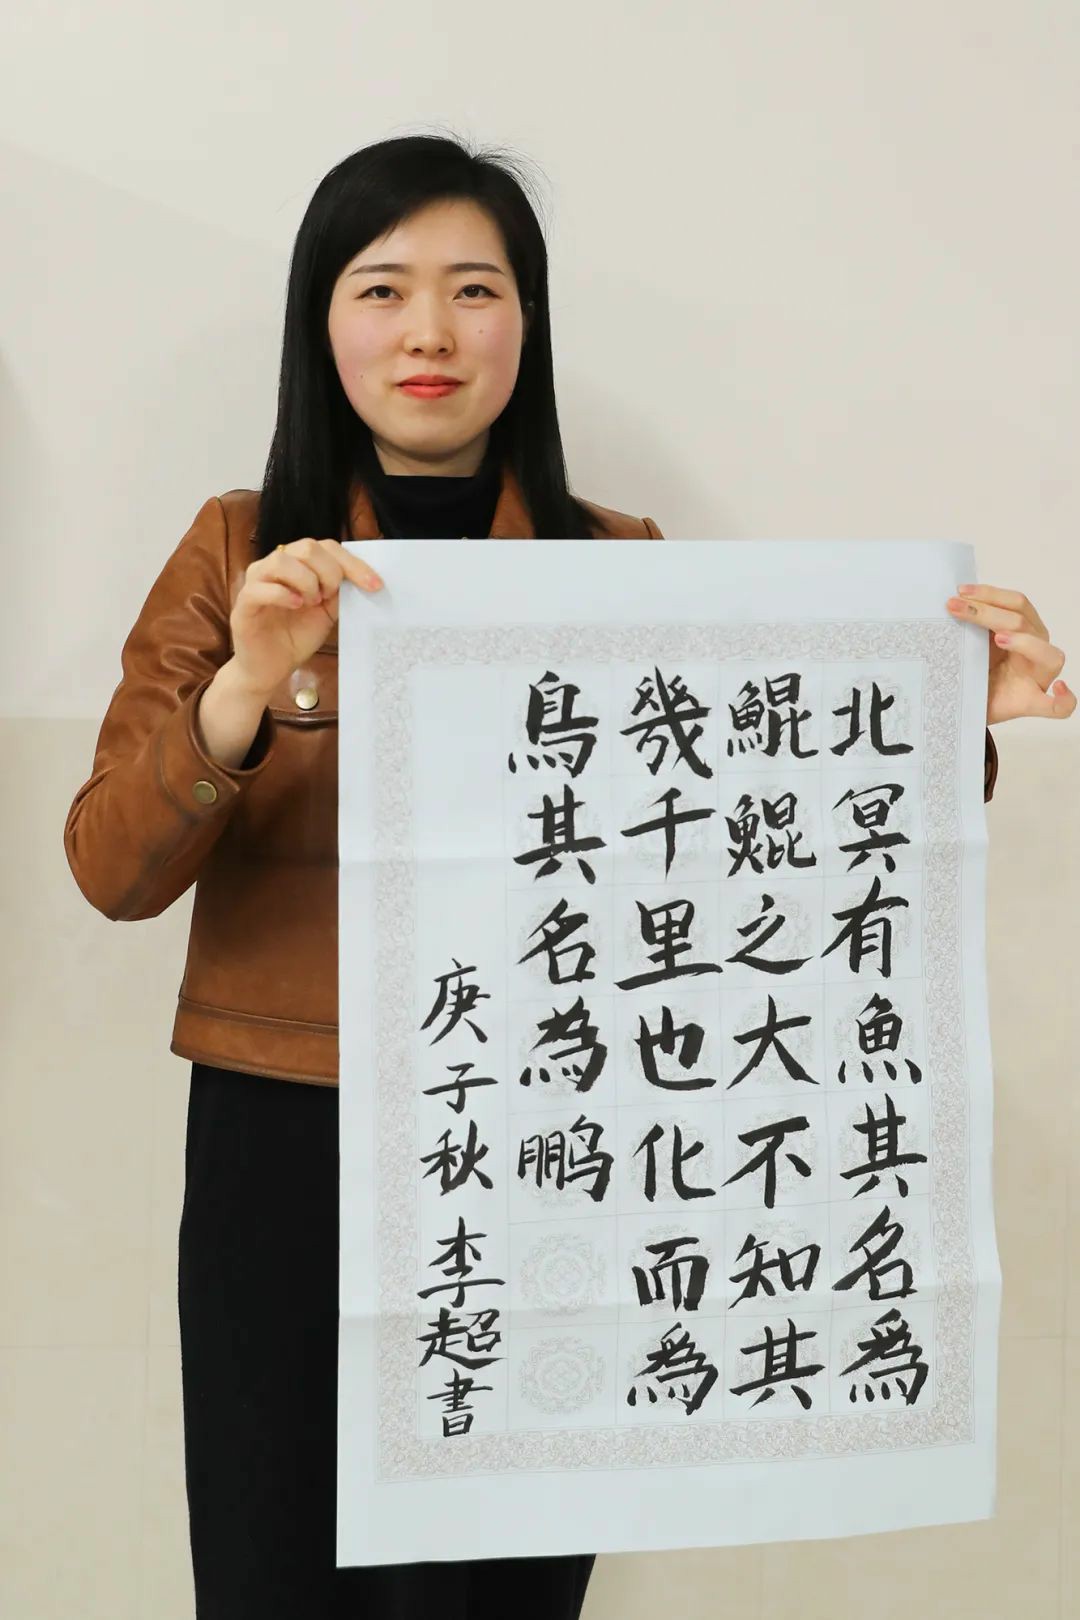 北冥有魚其名爲
鯤鯤之大不知其
幾千里也化而爲
鳥其名為鹏
庚子秋李超書